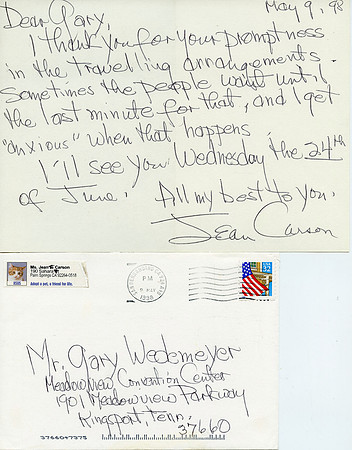 May 9, 98
Dear Gary,
I thank you for your promptness
in the travelling arrangements.
Sometimes the people wait until
the last minute for that, and I get
"anxious" when that happens
I'll see you Wednesday the 24th
of June. All my best to you.
Jean Carson
Ms. Jean Carson
190 Sahara
Palm Springs CA 92264-0518
Adopt a pet, a friend for life.
PM
1998
USA 32
Mr. Gary Wedemeyer
Meadowview Convention Center
1901 Meadowview Parkway
Kingsport, Tenn.
37660